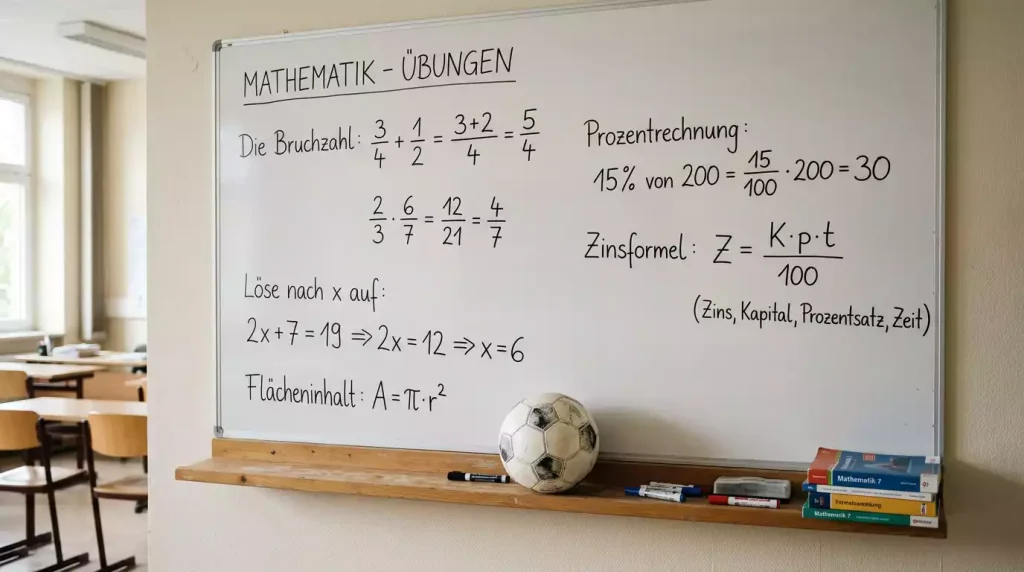 MATHEMATIK – ÜBUNGEN
Die Bruchzahl: 3/4 + 1/2 = (3+2)/4 = 5/4
2/3 · 6/7 = 12/21 = 4/7
Löse nach x auf:
2x+7=19 ⇒ 2x=12 ⇒ x=6
Flächeninhalt: A=π·r²
Prozentrechnung:
15% von 200 = 15/100 · 200 = 30
Zinsformel: Z = (K·p·t)/100
(Zins, Kapital, Prozentsatz, Zeit)
Mathematik 7
Mathematik 7